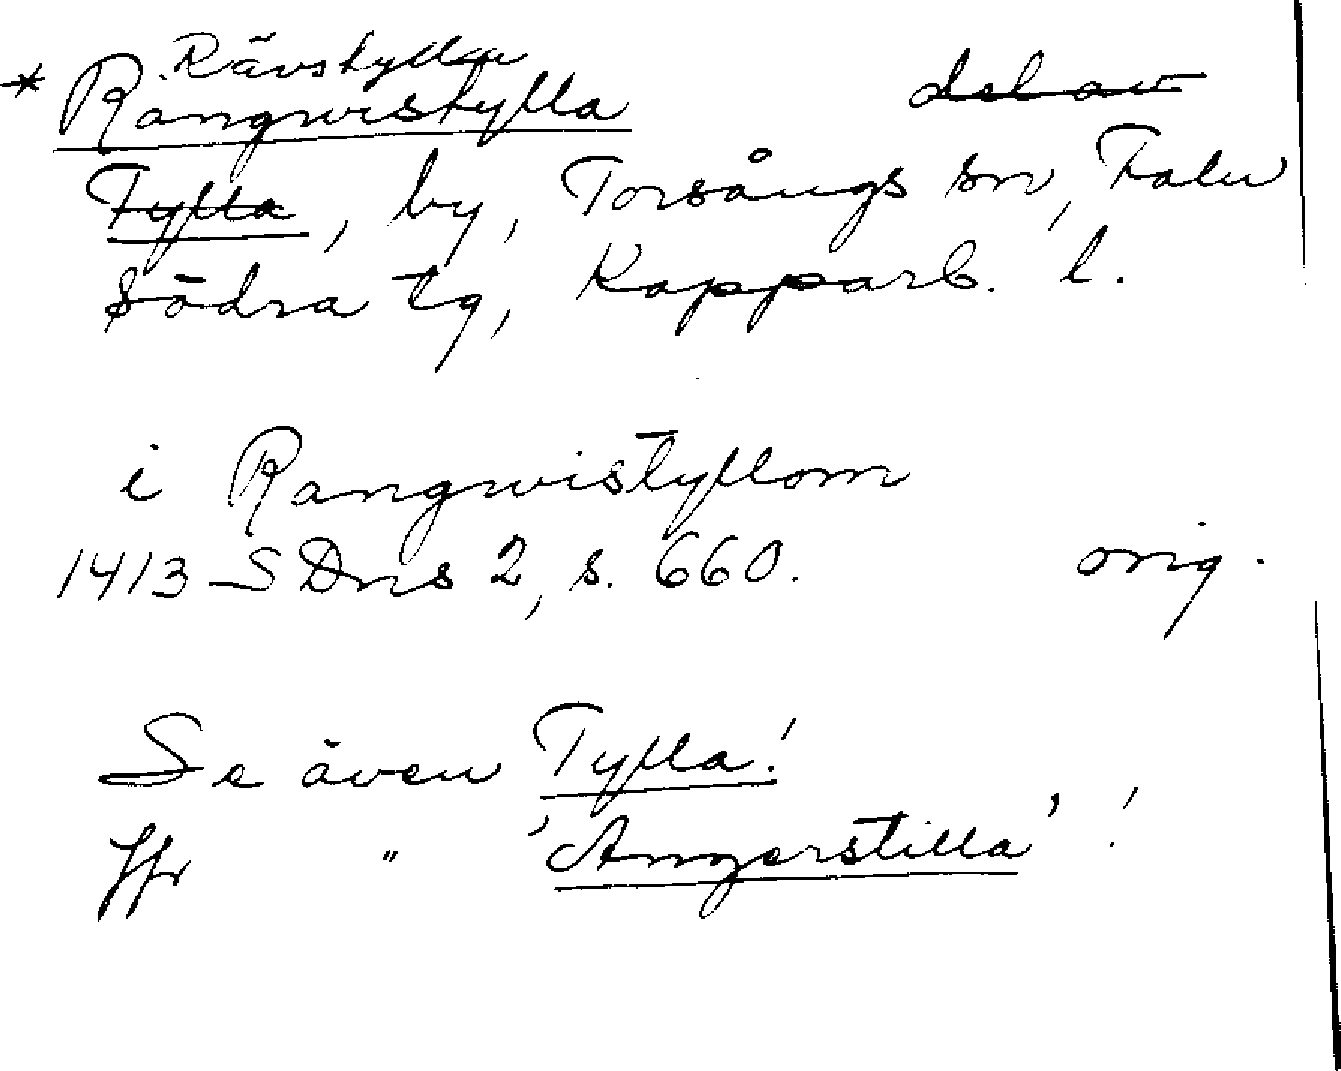 Rävstyllan
* Rangwistylla del av
Tylla, by, Torsångs sn, Falu
Södra tg, Kopparb. l.
i Rangwistyllom
1413 SDns 2, s. 660. orig.
Se även Tylla!
Jfr " 'Angerstilla'!